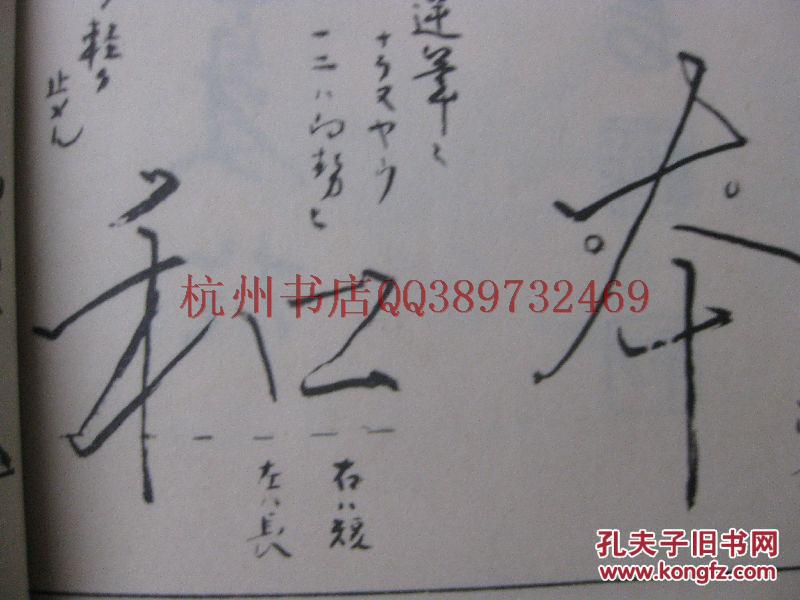 本
逆筆ニ
ナラヌヤウ
一二ハ向勢ニ
軽ク
止メん
和
右ハ短
左ハ長
杭州书店QQ389732469
孔夫子旧书网
www.kongfz.com